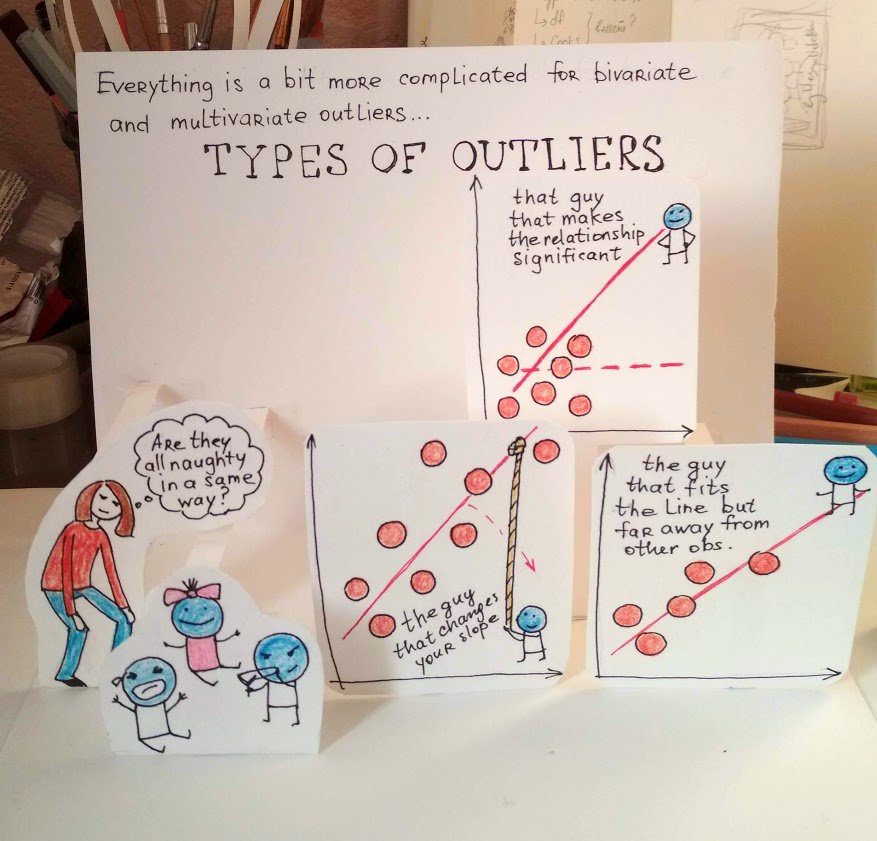 Everything is a bit more complicated for bivariate
and multivariate outliers...
TYPES OF OUTLIERS
that guy
that makes
the relationship
significant
Are they
all naughty
in a same
way?
the guy
that changes
your slope
the guy
that fits
the Line but
far away from
other obs.
df
Cooks